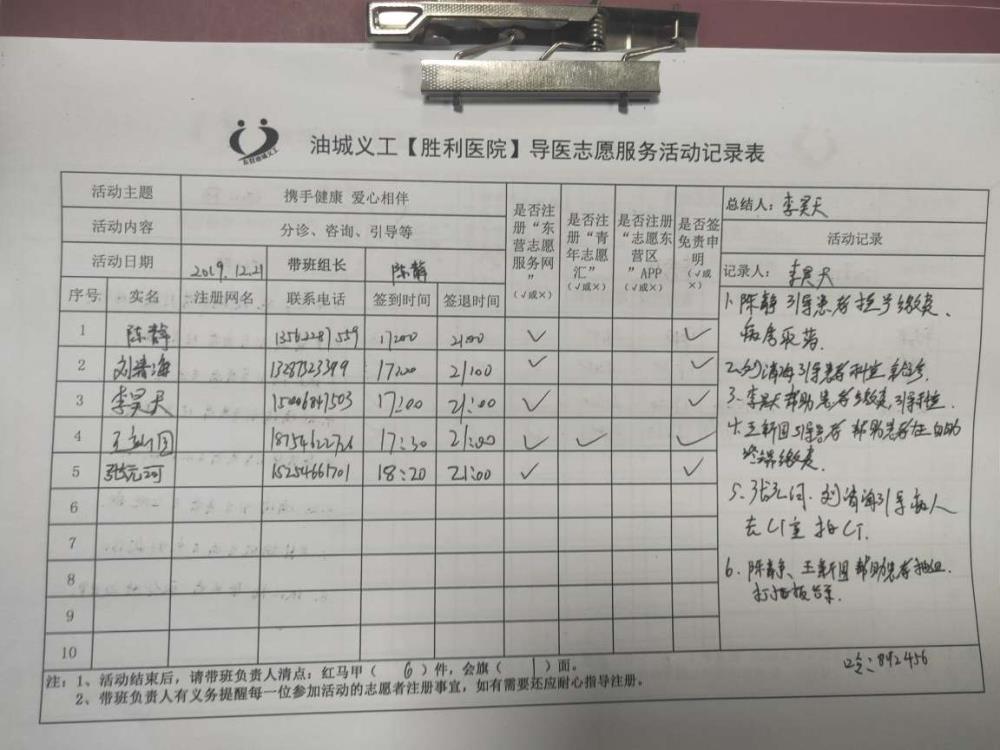 油城义工【胜利医院】导医志愿服务活动记录表
活动主题 携手健康 爱心相伴
活动内容 分诊、咨询、引导等
活动日期 2019.12.21 带班组长 陈静
是否注册“东营志愿服务网”(√或×)
是否注册“青年志愿汇”(√或×)
是否注册“志愿东营区”APP(√或×)
是否签免责申明(√或×)
总结人：李昊天
活动记录
记录人：李昊天
序号 实名 注册网名 联系电话 签到时间 签退时间
1 陈静 13562287559 17:00 21:00 √ √
2 刘清海 13287323399 17:00 21:00 √ √
3 李昊天 15006847503 17:00 21:00 √ √
4 王新国 18754622726 17:30 21:00 √ √ √
5 张元河 15254661701 18:20 21:00 √ √
6
7
8
9
10
1、陈静引导患者挂号缴费、
病房取药.
2、刘清海引导患者科室就诊.
3、李昊天帮助患者缴费,引导科室.
4、王新国引导患者 帮助患者在自助
终端缴费.
5、张元河、刘清海引导病人
去CT室 拍CT.
6、陈静、王新国帮助患者
打 报告.
口令:892456
注：1、活动结束后，请带班负责人清点：红马甲（ 6 ）件，会旗（ 1 ）面。
2、带班负责人有义务提醒每一位参加活动的志愿者注册事宜，如有需要还应耐心指导注册。